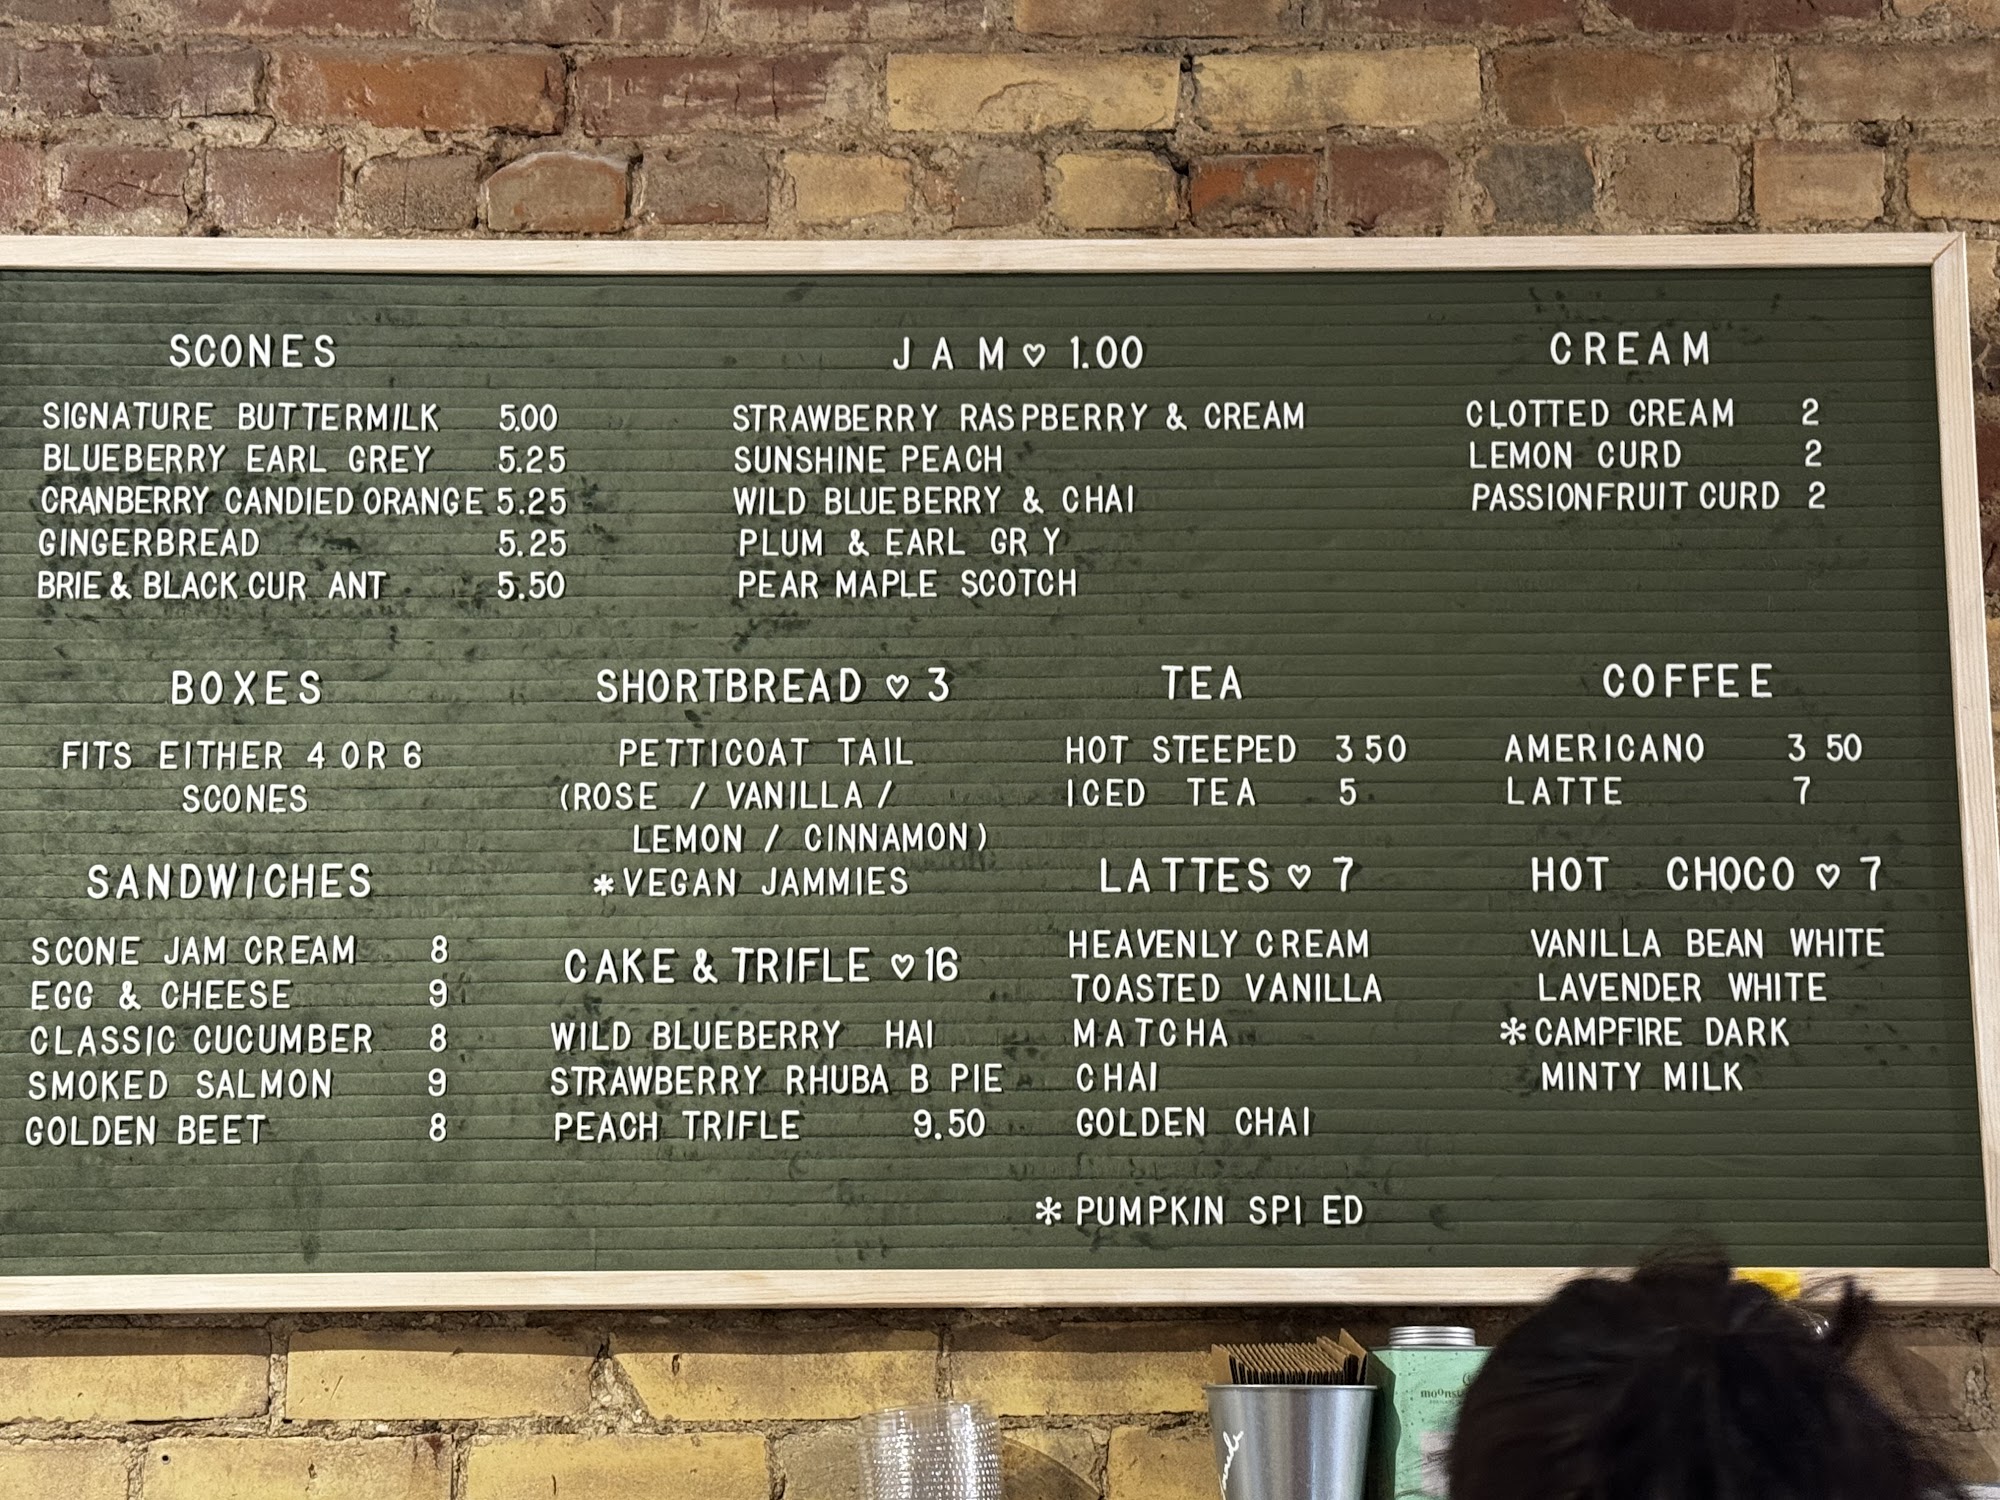 SCONES
SIGNATURE BUTTERMILK 5.00
BLUEBERRY EARL GREY 5.25
CRANBERRY CANDIED ORANGE 5.25
GINGERBREAD 5.25
BRIE & BLACK CUR ANT 5.50
JAM ♡ 1.00
STRAWBERRY RASPBERRY & CREAM
SUNSHINE PEACH
WILD BLUEBERRY & CHAI
PLUM & EARL GR Y
PEAR MAPLE SCOTCH
CREAM
CLOTTED CREAM 2
LEMON CURD 2
PASSIONFRUIT CURD 2
BOXES
FITS EITHER 4 OR 6
SCONES
SANDWICHES
SCONE JAM CREAM 8
EGG & CHEESE 9
CLASSIC CUCUMBER 8
SMOKED SALMON 9
GOLDEN BEET 8
SHORTBREAD ♡ 3
PETTICOAT TAIL
(ROSE / VANILLA /
LEMON / CINNAMON)
*VEGAN JAMMIES
CAKE & TRIFLE ♡ 16
WILD BLUEBERRY HAI
STRAWBERRY RHUBA B PIE
PEACH TRIFLE 9.50
TEA
HOT STEEPED 3 50
ICED TEA 5
LATTES ♡ 7
HEAVENLY CREAM
TOASTED VANILLA
MATCHA
CHAI
GOLDEN CHAI
* PUMPKIN SPI ED
COFFEE
AMERICANO 3 50
LATTE 7
HOT CHOCO ♡ 7
VANILLA BEAN WHITE
LAVENDER WHITE
*CAMPFIRE DARK
MINTY MILK